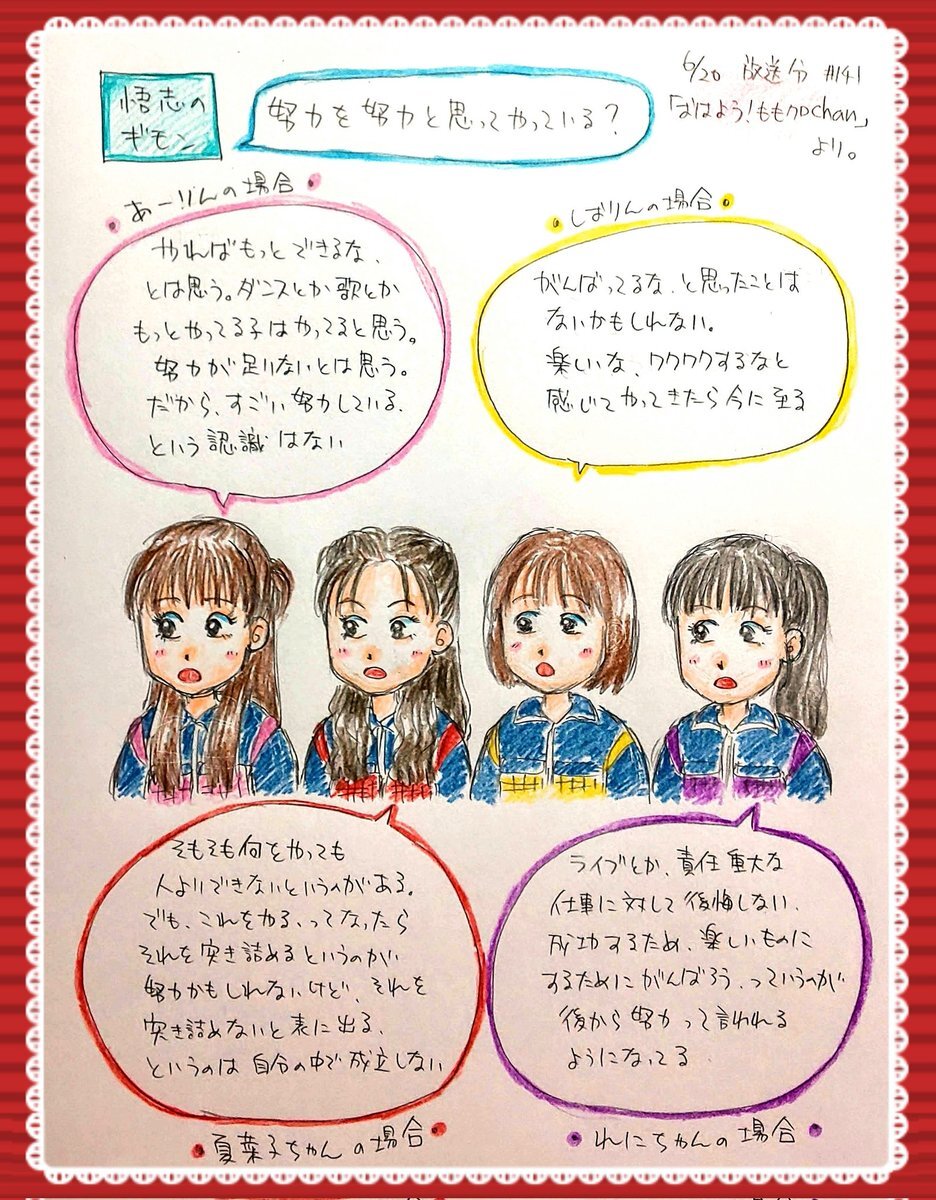 悟志の
ギモン
努力を努力と思ってやっている?
6/20 放送分 #141
「おはよう!ももクロchan」
より。
あーりんの場合
やればもっとできるな、
とは思う。ダンスとか歌とか
もっとやってる子はやってると思う。
努力が足りないとは思う。
だから、すごい努力している、
という認識はない
しおりんの場合
がんばってるな、と思ったことは
ないかもしれない。
楽しいな、ワクワクするなと
感じてやってきたら今に至る
そもそも何をやっても
人よりできないというのがある。
でも、これをやる、ってなったら
それを突き詰めるというのが
努力かもしれないけど、それを
突き詰めないと表に出る、
というのは自分の中で成立しない
夏菜子ちゃんの場合
ライブとか、責任重大な
仕事に対して後悔しない、
成功するため、楽しいものに
するためにがんばろう、っていうのが
後から努力って言われる
ようになってる
れにちゃんの場合